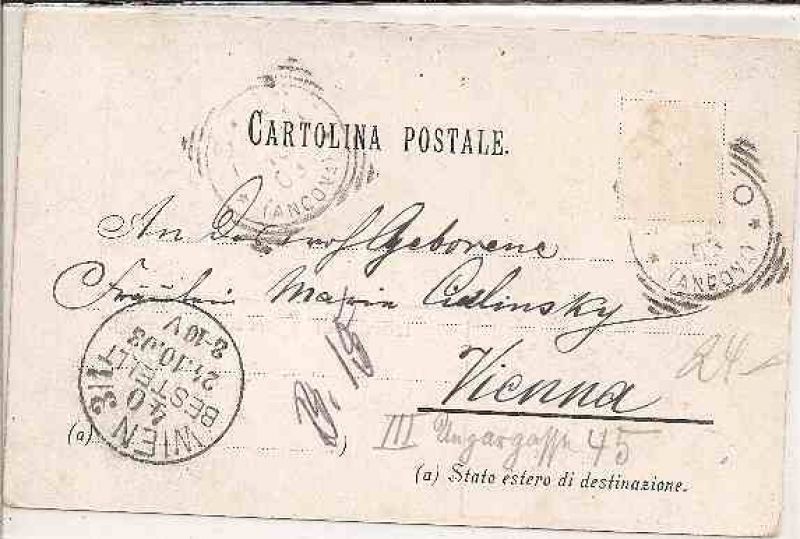 CARTOLINA POSTALE.
(ANCONA)
O.
(ANCONA)
An Geborene
Fräulein Maria Cidlinsky
Vienna
B. 15
24-
III Ungargasse 45
WIEN 3/1
40
BESTELLT
21.10.03
8-10V
(a) )
(a) Stato estero di destinazione.